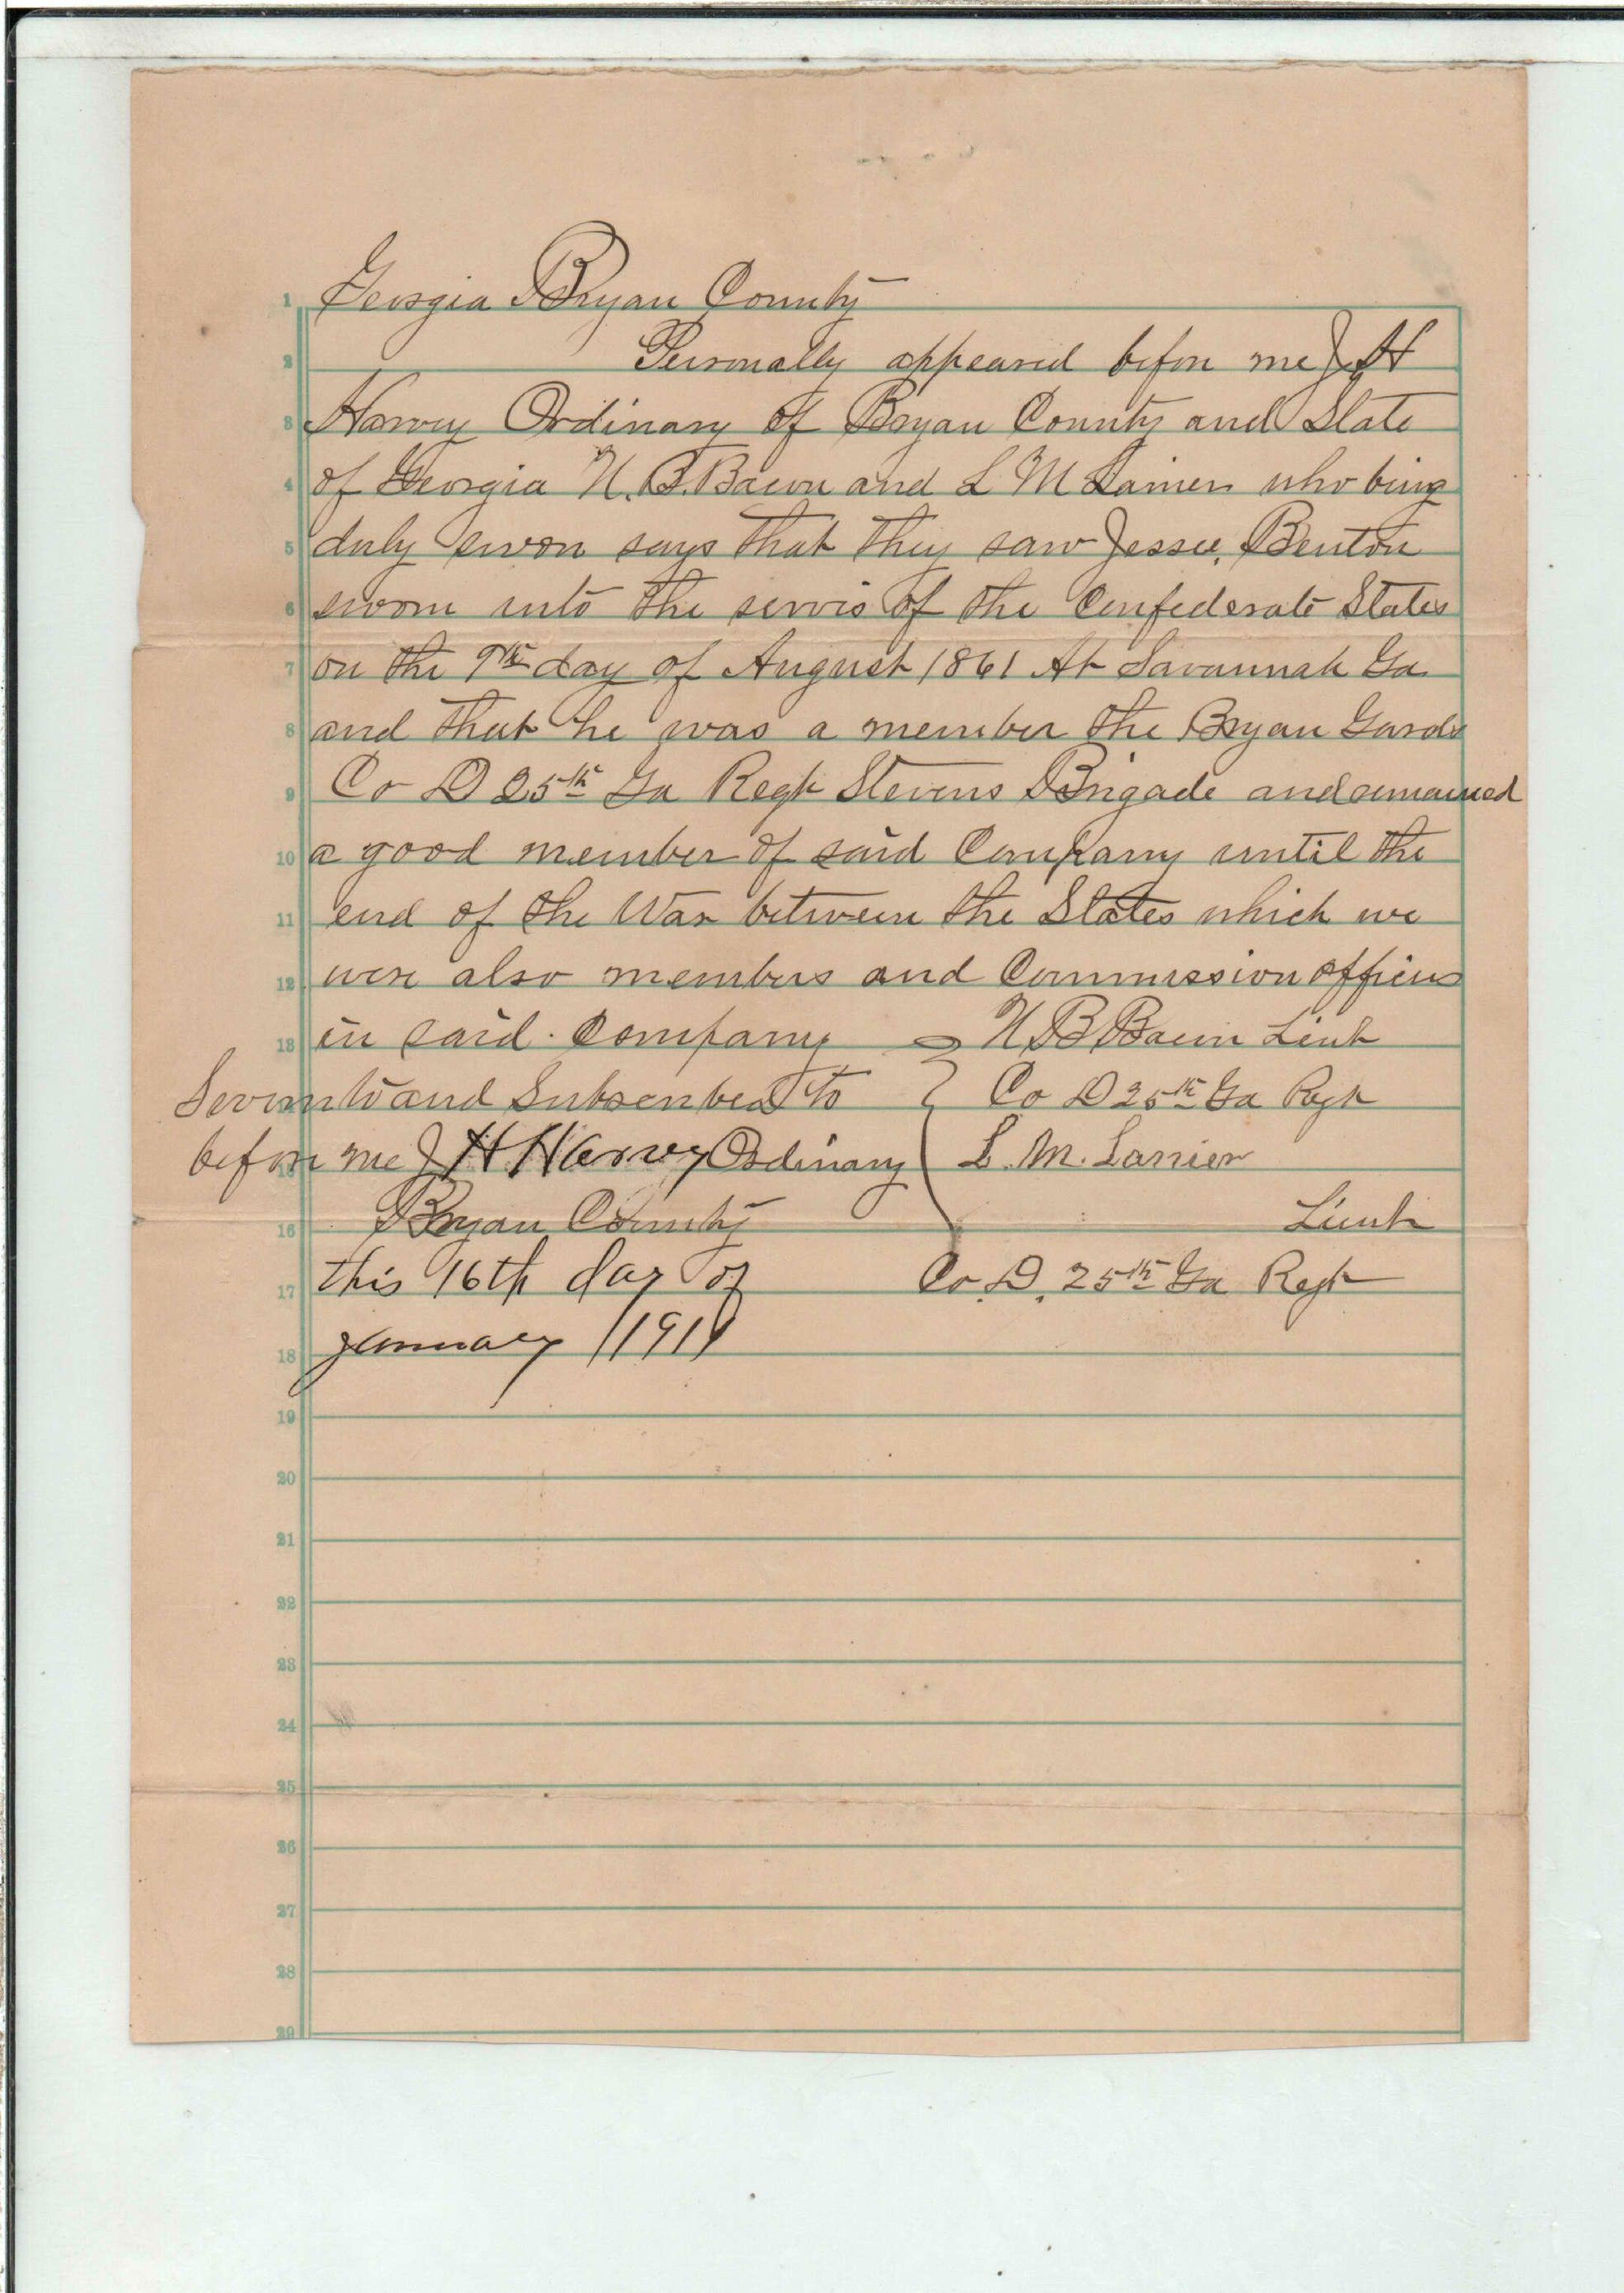 1 Georgia Bryan County
2 Personally appeared before me J. H
3 Harvey Ordinary of Bryan County and State
4 of Georgia N. B. Bacon and L M Lainer who being
5 duly sworn says that they saw Jessee, Benton
6 sworn into the servis of the Confederate States
7 on the 9th day of August 1861 At Savannah Ga
8 and that he was a member the Bryan Gards
9 Co D 25th Ga Regt Stevens Brigade and remained
10 a good member of said Company until the
11 end of the War between the States which we
12 were also members and Commission officers
13 in said Company N B Bacon Lieut
Sworn to and Subscribed to Co D 25th Ga Regt
before me J H Harvey Ordinary L. M. Lanier
16 Bryan County Lieut
17 this 16th day of Co. D. 25th Ga Regt
18 January 1911
19
20
21
22
23
24
25
26
27
28
29